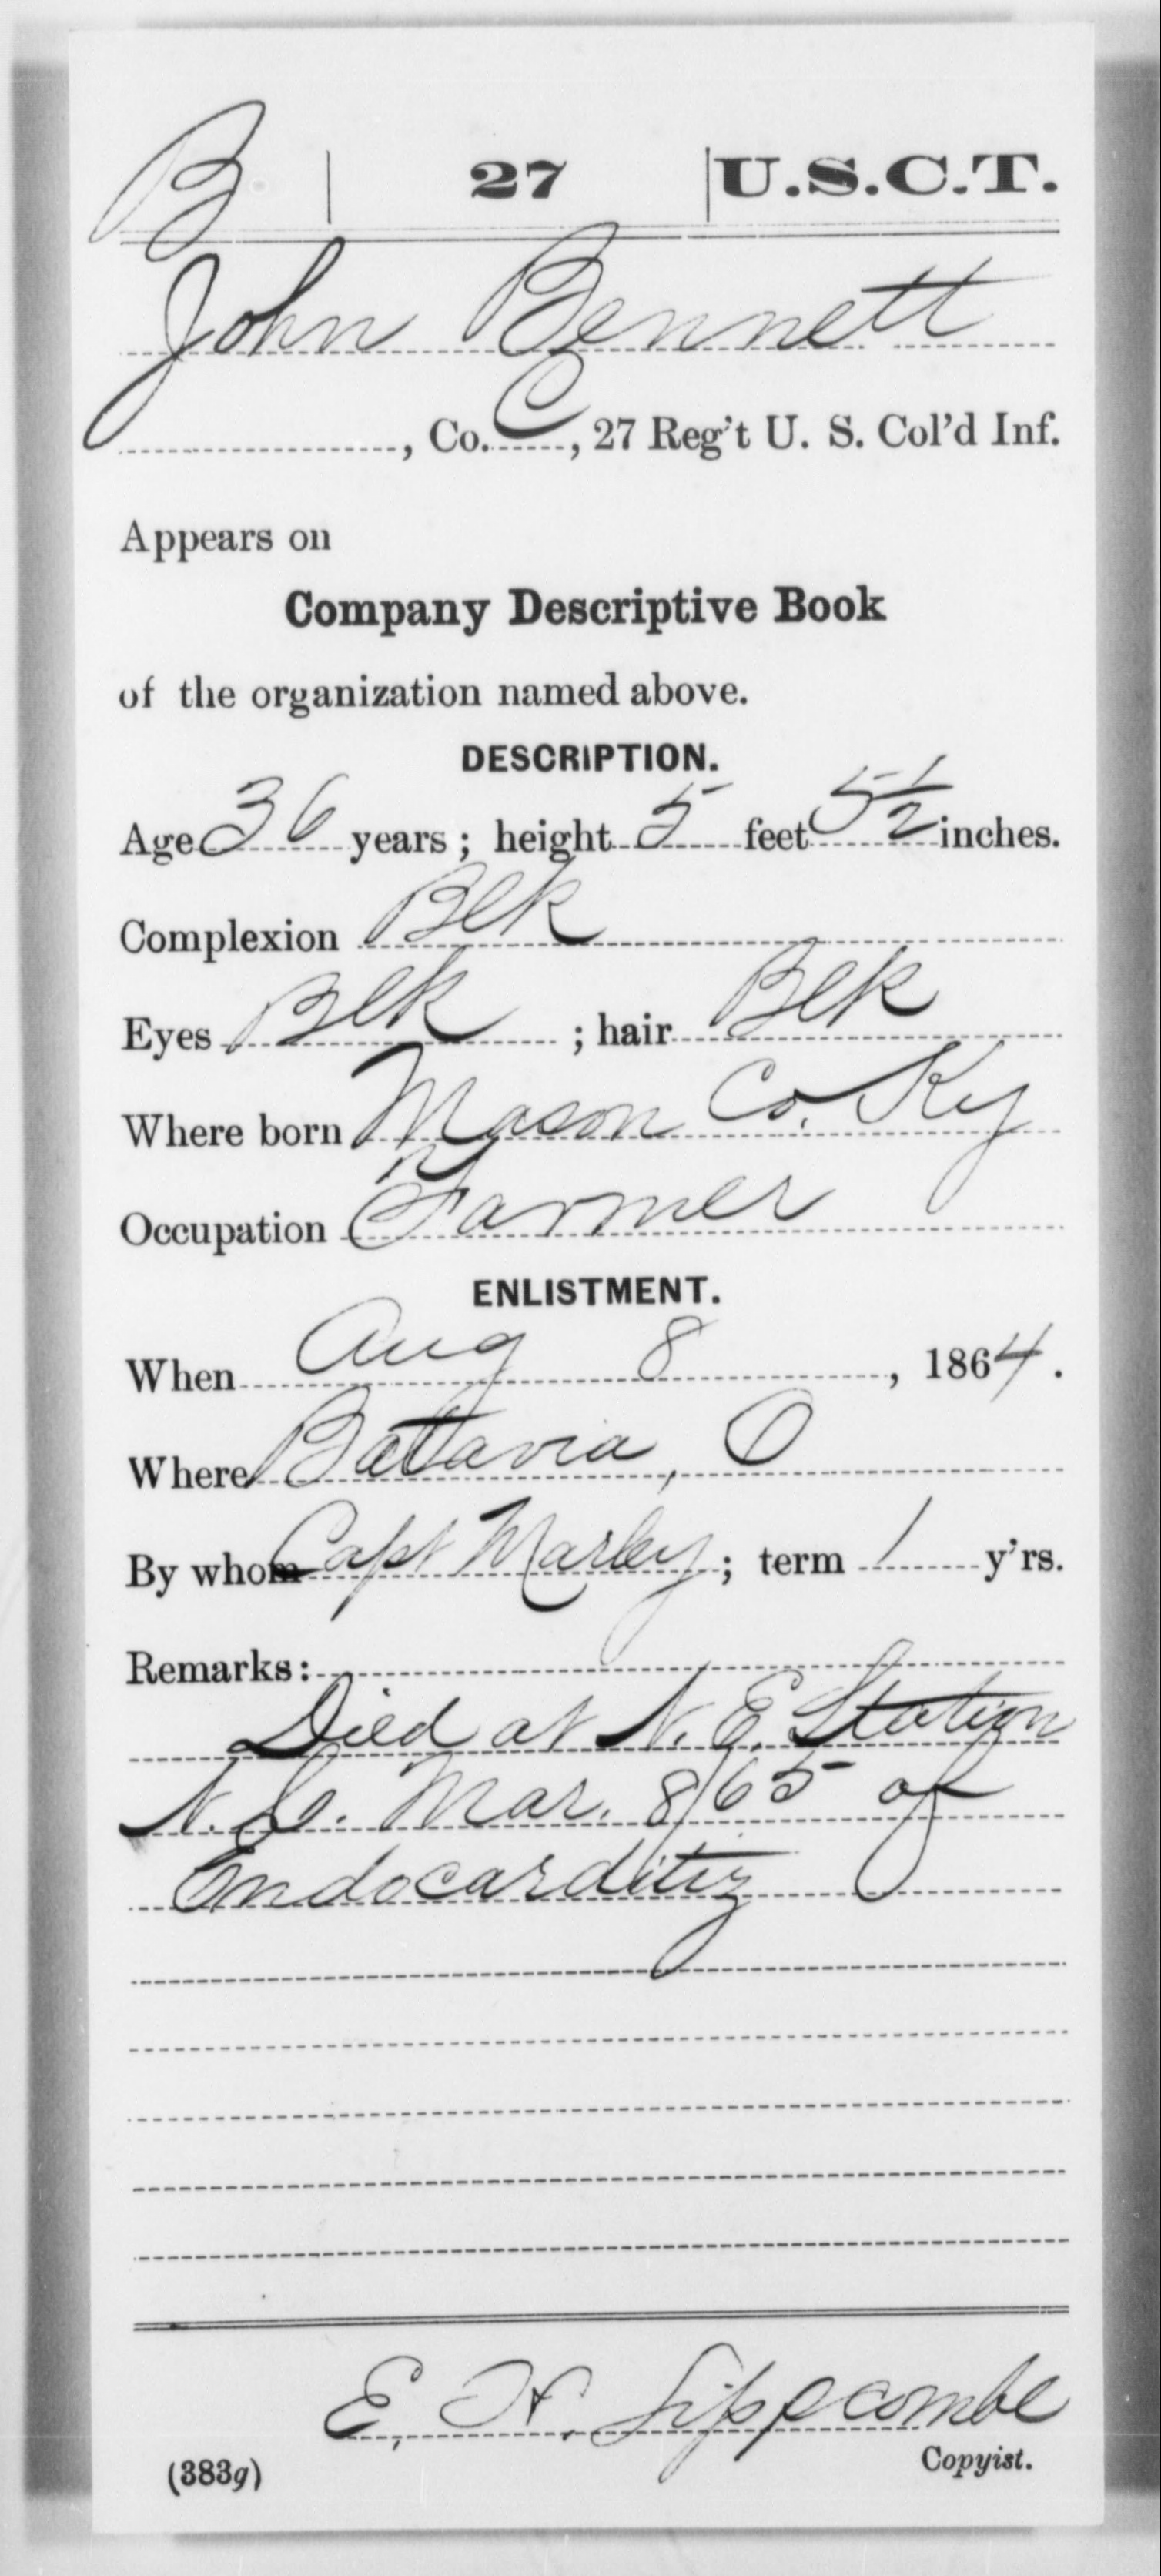 B | 27 | U.S.C.T.
John Bennett
, Co. C, 27 Reg't U. S. Col'd Inf.
Appears on
Company Descriptive Book
of the organization named above.
DESCRIPTION.
Age 36 years; height 5 feet 5 1/2 inches.
Complexion Blk
Eyes Blk ; hair Blk
Where born Mason Co. Ky
Occupation Farmer
ENLISTMENT.
When Aug 8, 1864.
Where Battavia, O
By whom Capt Marley; term 1 y'rs.
Remarks:
Died at N. E. Station
N. C. Mar. 8/65 of
Endocarditiz
E. H. Lippcombe
Copyist.
(383g)